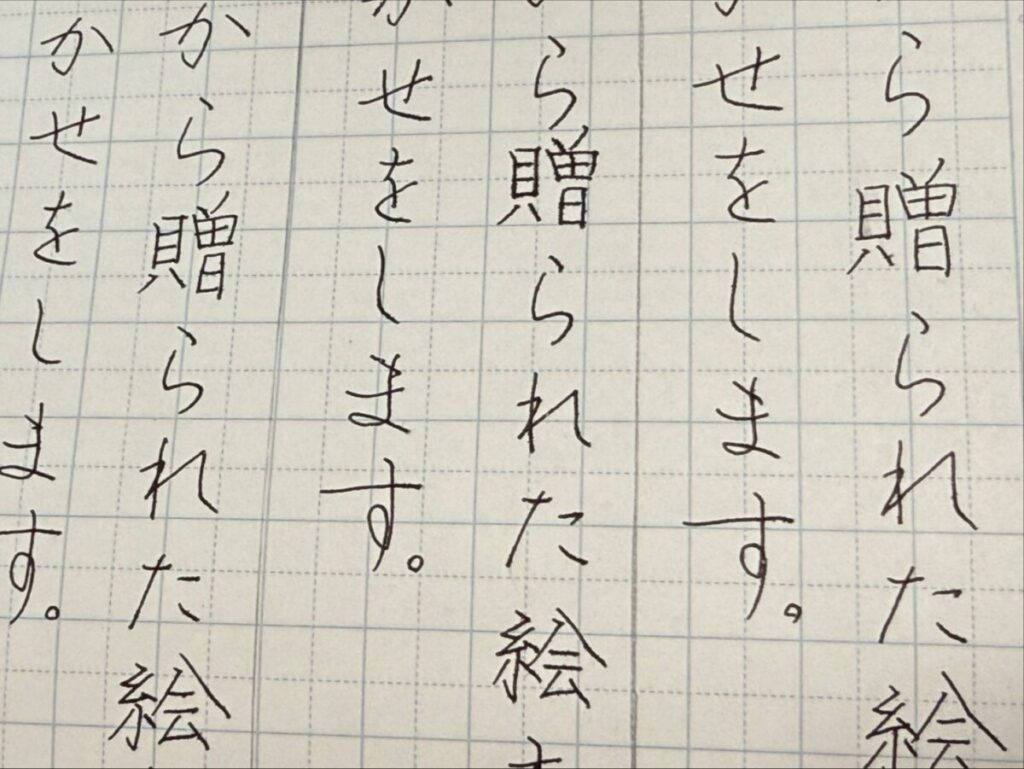 ら贈られた絵
せをします。
ら贈られた絵
かせをします。
から贈られた絵
かせをします。